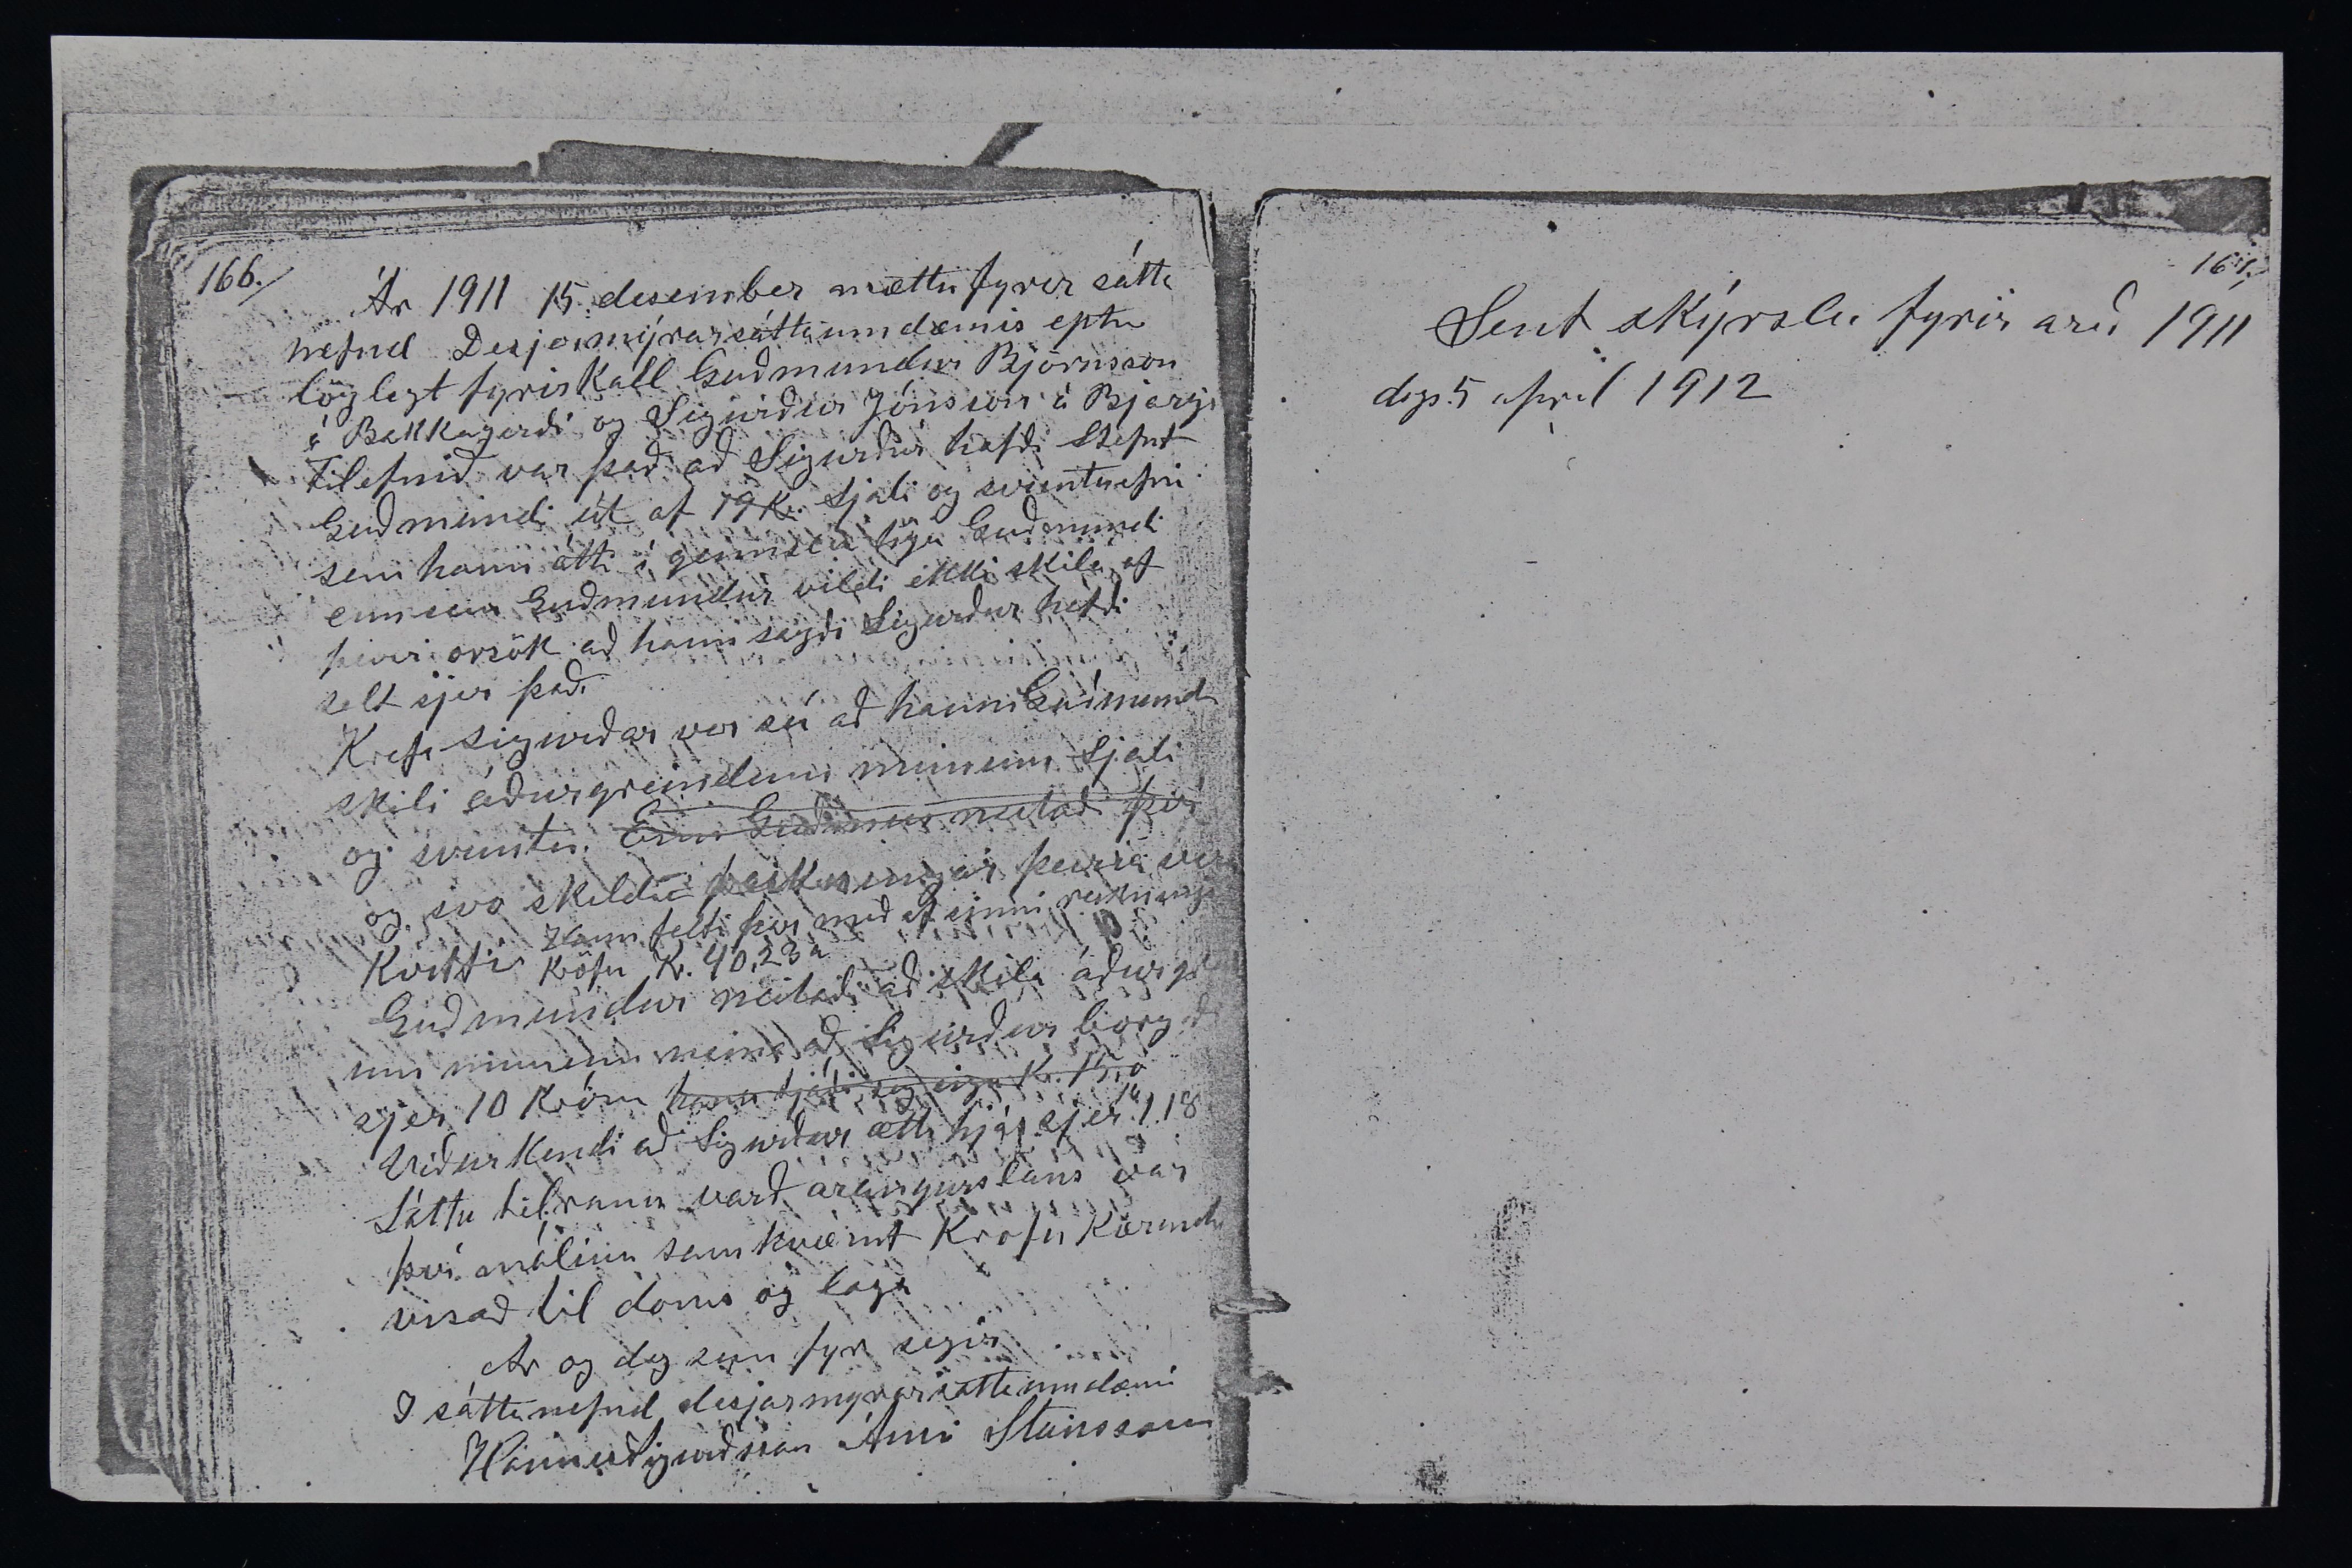 166.
Ár 1911 15. desember mættu fyrir sátta
nefnd Desjarmýrarsáttaumdæmis eptir
löglegt fyrirkall Guðmundur Björnsson
á Bakkagerði og Sigurður Jónsson á Bjargi
Tilefnið var það að Sigurður hafði Stefnt
Guðmundi út af 19 kr. Sjali og svuntuefni
sem hann átti í geimslu hjá Guðmundi
enn sem Guðmundur vildi ekki skila af
þeirri orsök að hann sagði Sigurður hefði
selt sjer það.
Krafa Sigurðar var sú að hann Guðmund
skili áðurgreindum munum Sjali
og svuntu. Enn Guðmundur neitaði því
og svo skildu þeirra vera
Kvittir Hann felti þar með af sinni reiknings
Kröfu Kr. 40,23 a
Guðmundur neitaði að skila áðurgr
um munum nema að Sigurður borgaði
sjer 10 Krónur hann sig eiga Kr. 15,0
Viðurkendi að Sigurður ætti hjá sjer 1.18
Sáttu tilraun varð árángurslaus var
því málinu samkvæmt Krofu Kærand
vísað til doms og laga
Ar og dag sem fyr segir
I sáttanefnd desjarmyrarsattaumdæmi
Hannes Sigurdsson Árni Steinsson
Sent skýrslu fyrir arið 1911
dags. 5 april 1912